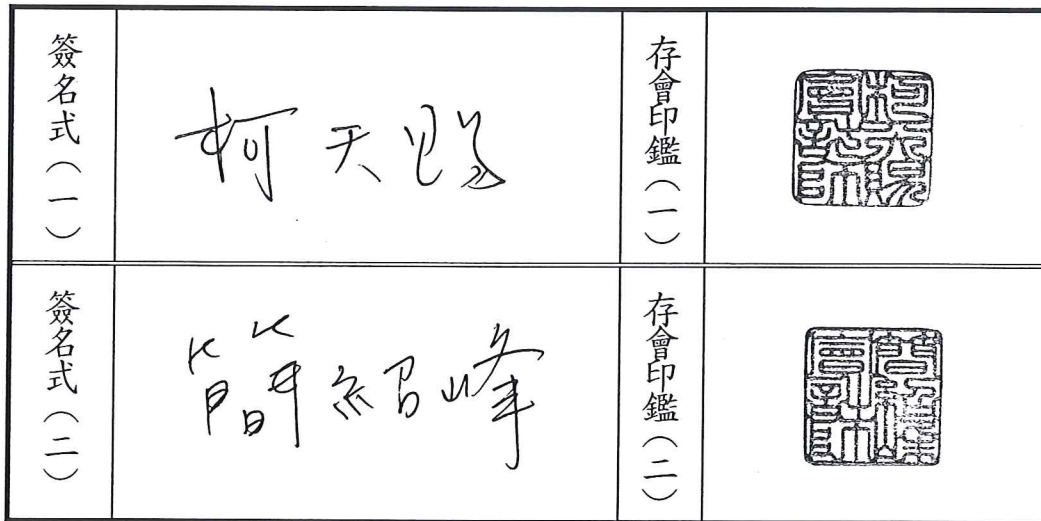 簽名式（一）
柯天賜
存會印鑑（一）
柯天賜會計師
簽名式（二）
簡紹峰
存會印鑑（二）